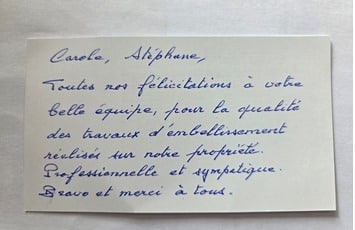 Carole, Stéphane,
Toutes nos félicitations à votre
belle équipe, pour la qualité
des travaux d'embellissement
réalisés sur notre propriété.
Professionnelle et sympatique.
Bravo et merci à tous.